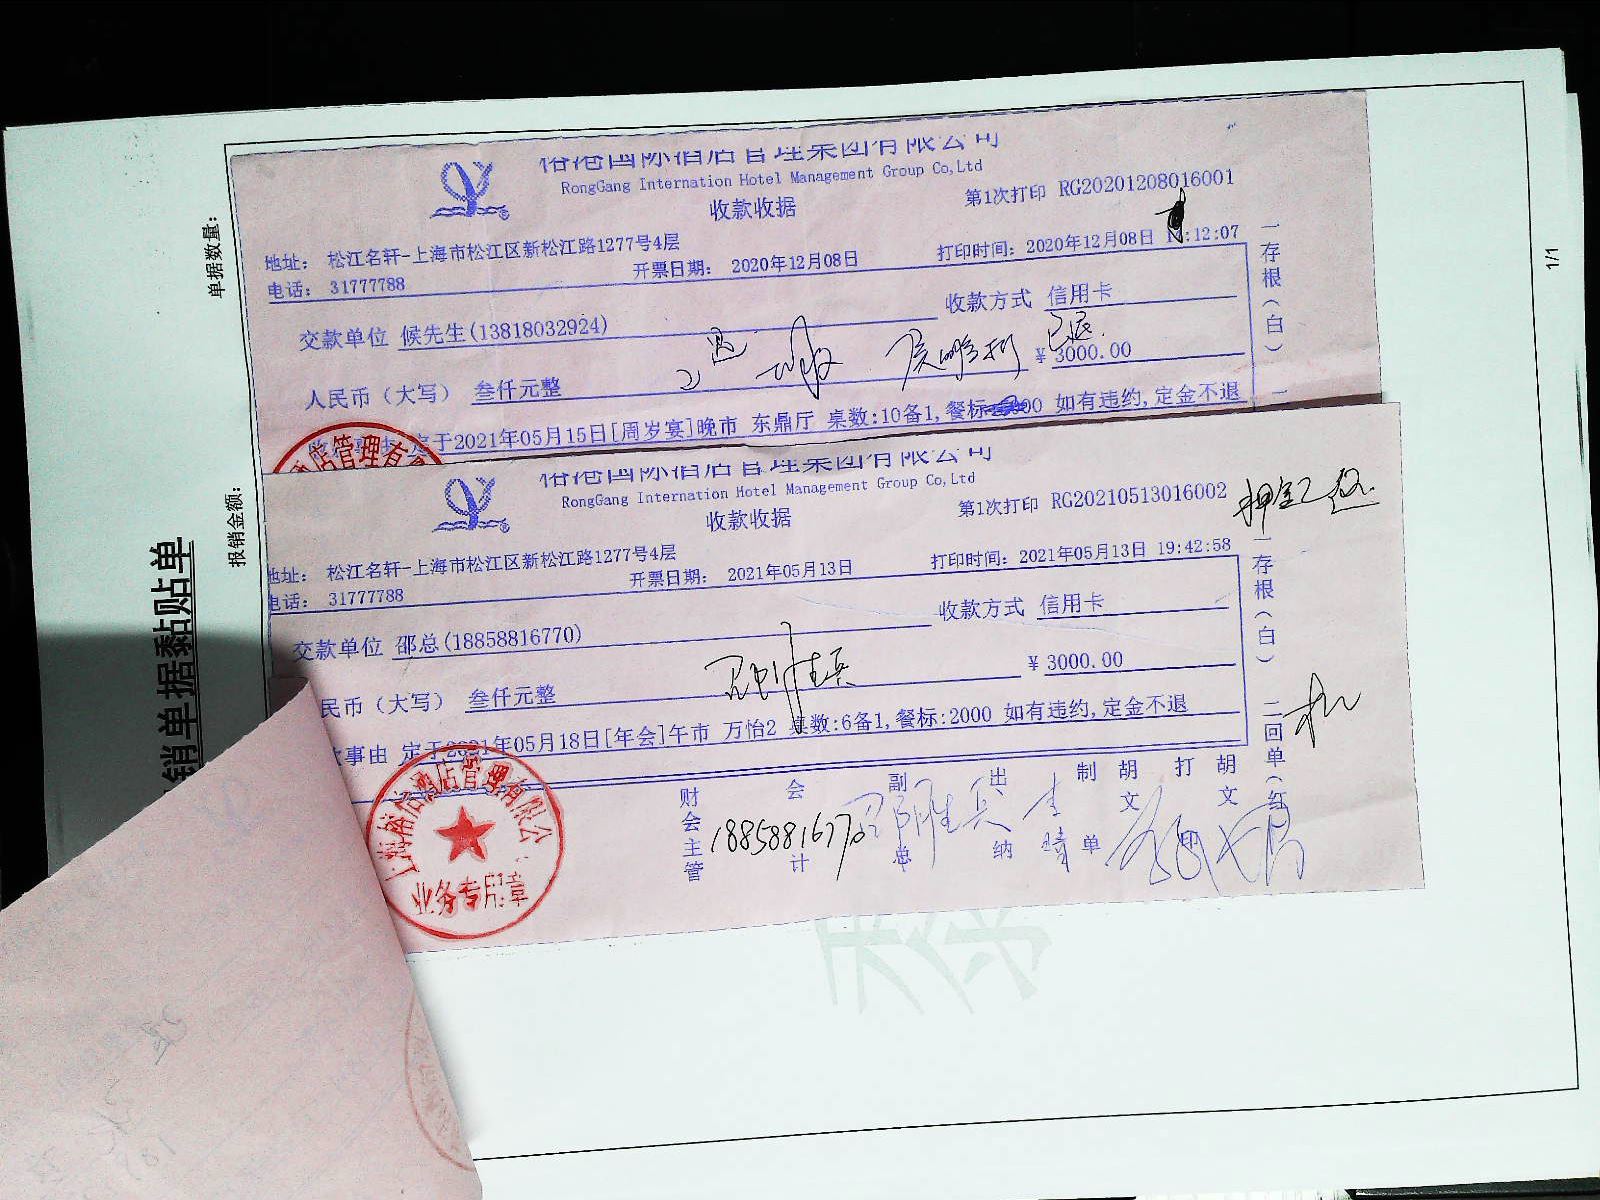 单据数量：
报销金额：
销单据黏贴单
1/1
裕港国际酒店管理集团有限公司
RongGang Internation Hotel Management Group Co,Ltd
收款收据
第1次打印 RG20201208016001
地址： 松江名轩-上海市松江区新松江路1277号4层
电话： 31777788
开票日期： 2020年12月08日
打印时间： 2020年12月08日 :12:07
交款单位 候先生(13818032924)
收款方式 信用卡
已退
人民币（大写） 叁仟元整
¥ 3000.00
定于2021年05月15日[周岁宴]晚市 东鼎厅 桌数:10备1,餐标 00 如有违约,定金不退
一存根（白）
裕港国际酒店管理集团有限公司
RongGang Internation Hotel Management Group Co,Ltd
收款收据
第1次打印 RG20210513016002
押金已退
地址： 松江名轩-上海市松江区新松江路1277号4层
电话： 31777788
开票日期： 2021年05月13日
打印时间： 2021年05月13日 19:42:58
交款单位 邵总(18858816770)
收款方式 信用卡
民币（大写） 叁仟元整
¥ 3000.00
邵胜兵
事由 定于2021年05月18日[年会]午市 万怡2 桌数:6备1,餐标:2000 如有违约,定金不退
一存根（白）
二回单（红
财会主管
会计
副总
出纳
制单
胡文
打印
胡文
18858816770 邵胜兵
酒店管理有限公
业务专用章